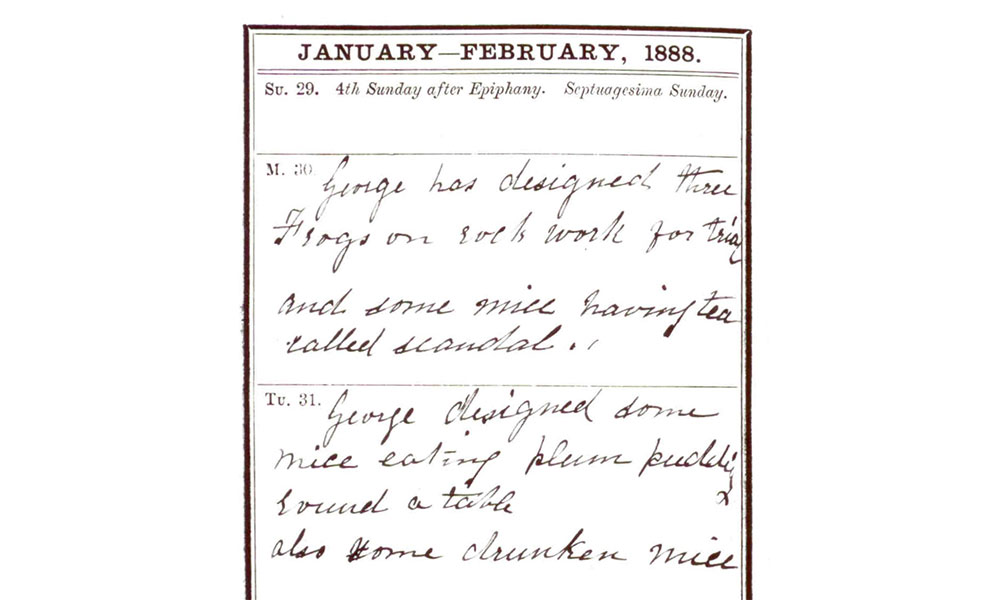 JANUARY—FEBRUARY, 1888.
SU. 29. 4th Sunday after Epiphany. Septuagesima Sunday.
M. 30. George has designed three
Frogs on rock work for tray
and some mice having tea
called scandal.
TU. 31. George designed some
mice eating plum pudding
round a table
also some drunken mice